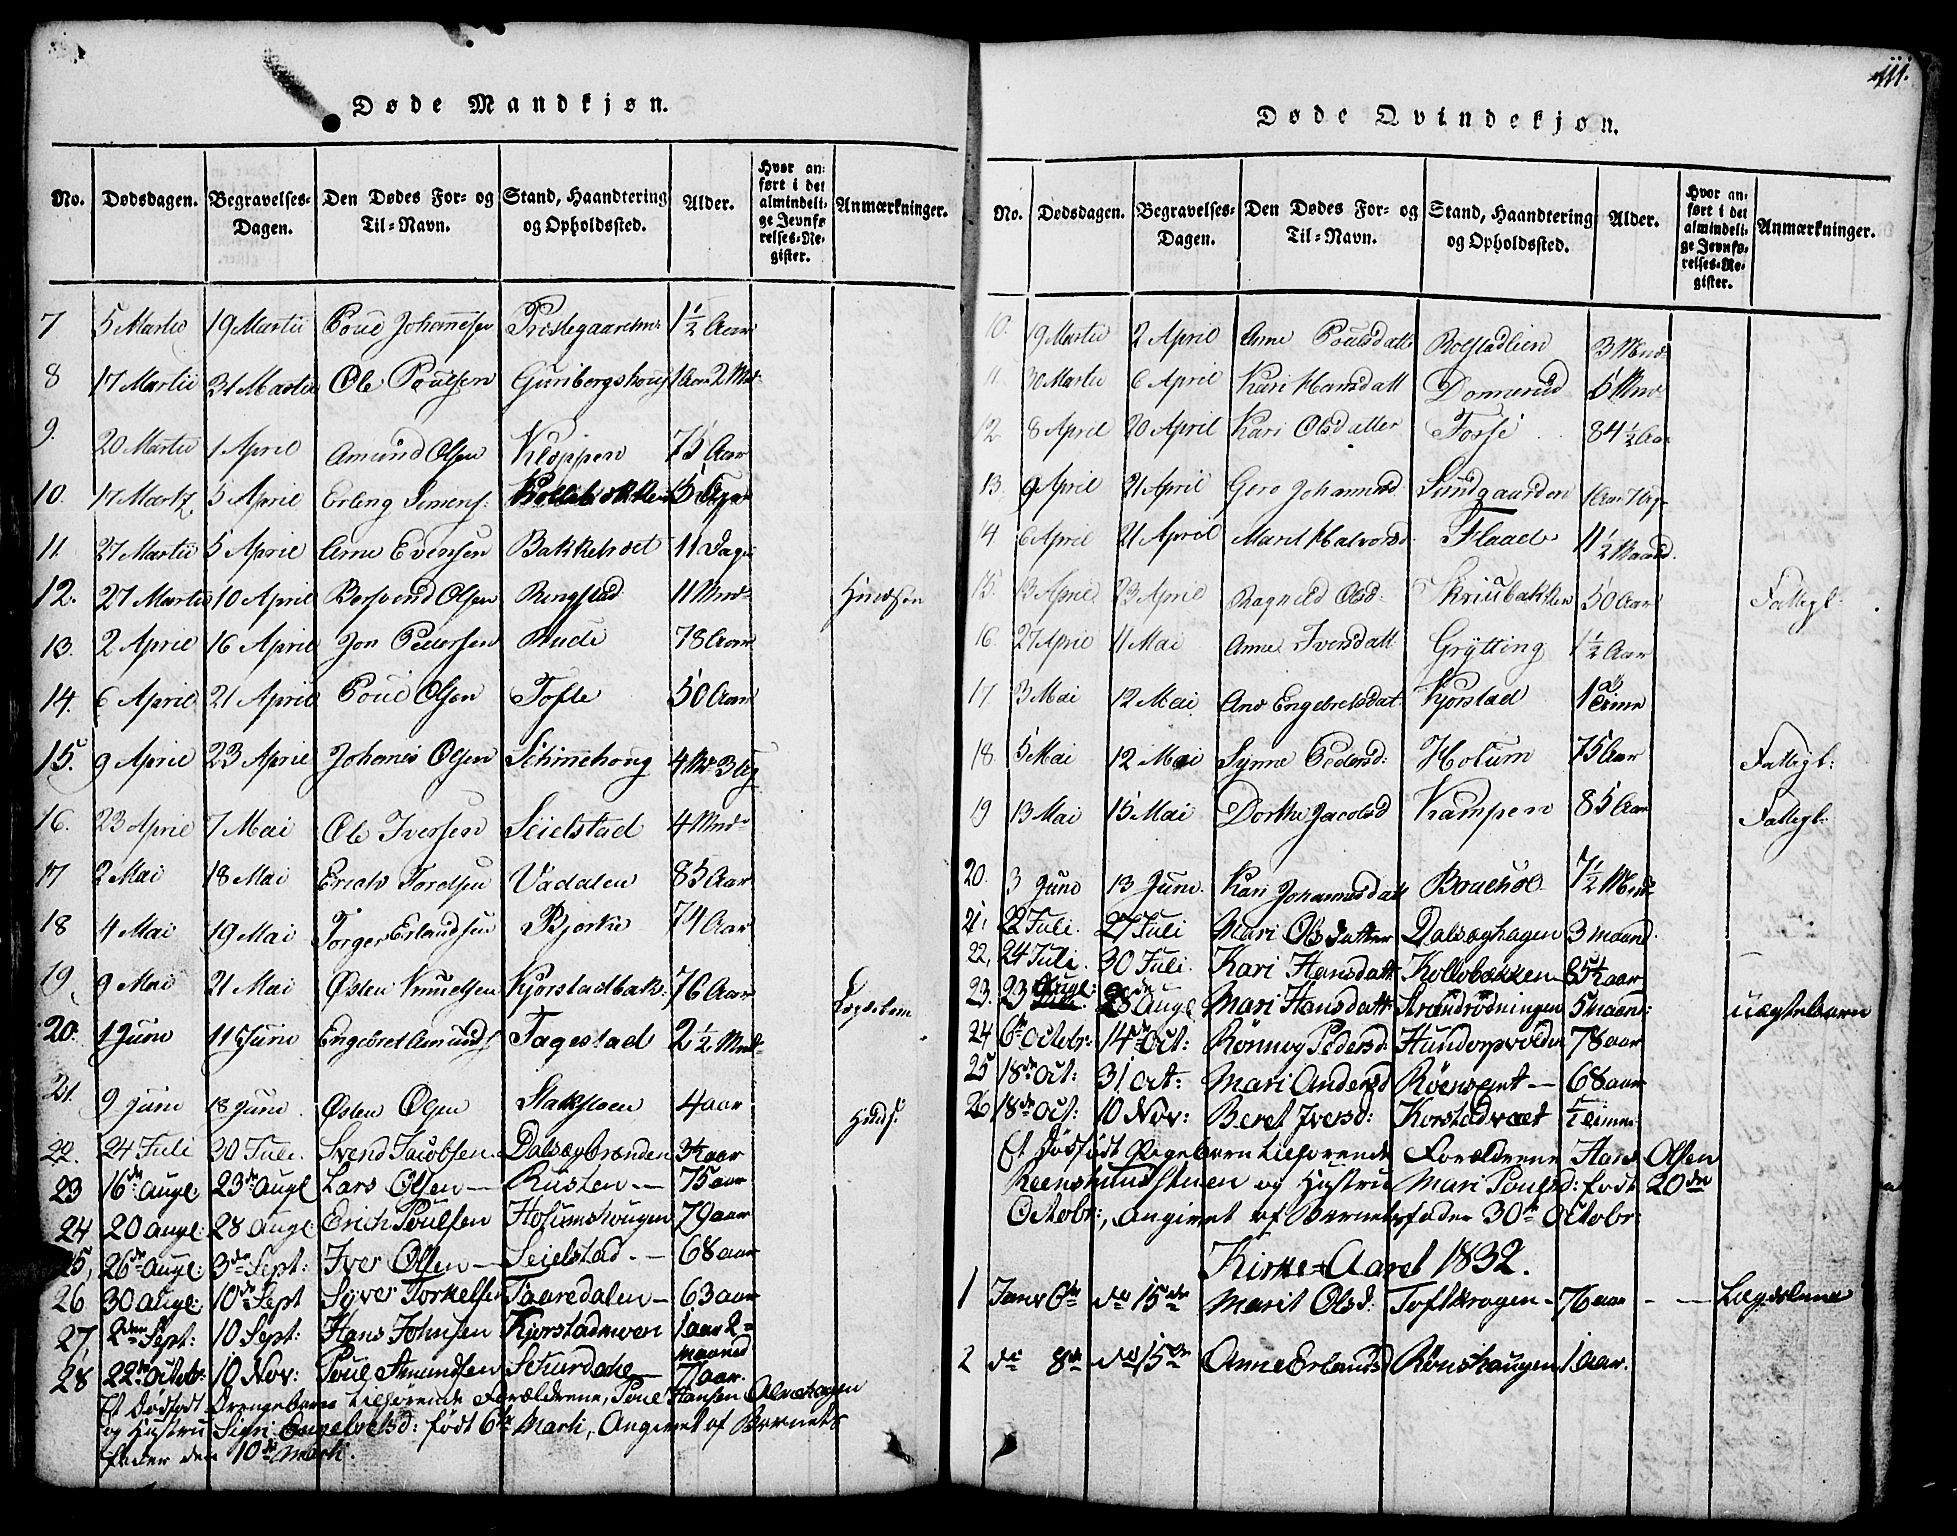 111.
Døde Mandkjøn.
No. Dødsdagen. Begravelses-Dagen. Den Dødes For- og Til-Navn. Stand, Haandtering og Opholdssted. Alder. Hvor anført i det almindelige Jevnførelses-Register. Anmærkninger.
7 5 Martii 19 Martii Poul Johannesen 1½ Aar
8 17 Martii 31 Martii Ole Poulsen 1 Aar 2 Mnd
9. 20 Martii 1 April Amund Olsen Kloppen 75 Aar
10. 17 Martz 5 April Erling Simens:
11. 27 Martii 5 April Arne Evensen Bakkehoet 11 Dage
12. 27 Martii 10 April Olsen Ringstad 11 Mnd
13. 2 April 16 April Jon Pedersen Rude 78 Aar
14. 6 April 21 April Poul Olsen Tofte 50 Aar
15. 9 April 23 April Johannes Olsen 4 M 3 Ug
16. 23 April 7 Mai Ole Iversen Seielstad 4 Mnd
17 2 Mai 18 Mai Erich Tordsen Vadalen 85 Aar
18 4 Mai 19 Mai Torger Erlandsen Bjorke 74 Aar
19 9 Mai 21 Mai Østen Knudsen Kjorstadbak: 76 Aar Lægdslem
20. 1 Juni 11 Juni Engebret Amunds Tagestad 2½ Mnd
21. 9 Juni 18 Juni Østen Olsen 4 aar
22. 24 Juli 30 Juli. Svend Jacobsen Dalsegbrænden aar
23 16de Augl: 23de Augl Lars Olsen — Rusten — 75 aar
24 20 Augl: 28 Augl: Erich Poulsen Holumshougen 79 aar
25, 26de Augl: 3de Sept: Iver Olsen — Seielstad — 68 aar
26 30 Augl: 10de Sept Syver Torkelsen Taaredalen — 63 aar
27, 2den Sept: 10 Sept: Hans Johnsen Kjorstadmoen 1 aar 2 maaned
28 22de Octobr: 10 Nov: Poul Amundsen 71 aar.
Et Dødfødt Drengebarn tilhørende Forældrene, Poul Hansen
og Hustru Sigri Engebretsd: født 6te Marti, Angivet af Barnets
fader den 10de Marti.
Døde Qvindekjøn.
No. Dødsdagen. Begravelses-Dagen. Den Dødes For- og Til-Navn. Stand, Haandtering og Opholdssted. Alder. Hvor anført i det almindelige Jevnførelses-Register. Anmærkninger.
10. 19 Martii 2 April Anne Poulsdatt Bolstadlien 3 Mnd
11. 30 Martii 6 April Kari Hansdatt Domerud 5 Mnd
12 8 April 20 April Kari Olsdatter Forse 84½ Aar
13. 9 April 21 April Goro Johannesd Sundgaarden
14 6 April 21 April Marit Halvorsd Flaade 11½ Maaned.
15. 13 April 23 April Ragnild Olsd: Skriubakken 50 Aar Fattigl:
16. 27 April 11 Mai Anne Iversdatt Grytting 1½ Aar
17 3 Mai 12 Mai Ane Engebretsdat Kjorstad
18. 5 Mai 12 Mai Synne Pedersd: Hovum 75 Aar Fattigl:
19 13 Mai 15 Mai Dorthe Jacobsd Kampen 85 Aar Fattigl:
20. 3 Juni 13 Juni Kari Johannesdatt 7½ Mnd
21, 22 Juli. 27 Juli Mari Olsdatter Dalseghagen 3 maaned.
22, 24 Juli. 30 Juli. Kari Hansdatt: Kollobækken 85½ aar
23. 23 Augl: 28 Augl Mari Hansdatt: Strandrødningen 5 maaned: uægtebarn
24 6te Octobr: 14de Oct: Rönnog Pedersd: Hundorpvolden 78 aar
25 18de Oct: 31 Oct: Mari Andersd 68 aar
26 18de Oct: 10 Nov: Beret Iversd: Korstadvæt ½ time
Et Dødfødt Pigebarn tilhørende Forældrene Hans Olsen
og Hustru Mari Poulsd: født 20de
Octobr:, angivet af Barnets fader 30te Octobr:
Kirke-Aaret 1832.
1 Janv 6te de 15de Marit Olsd: Toftkrogen — 76 aar — — Lægdslem
2 de 8de de 15de Anne Erlandsd Rønshaugen 1 aar.